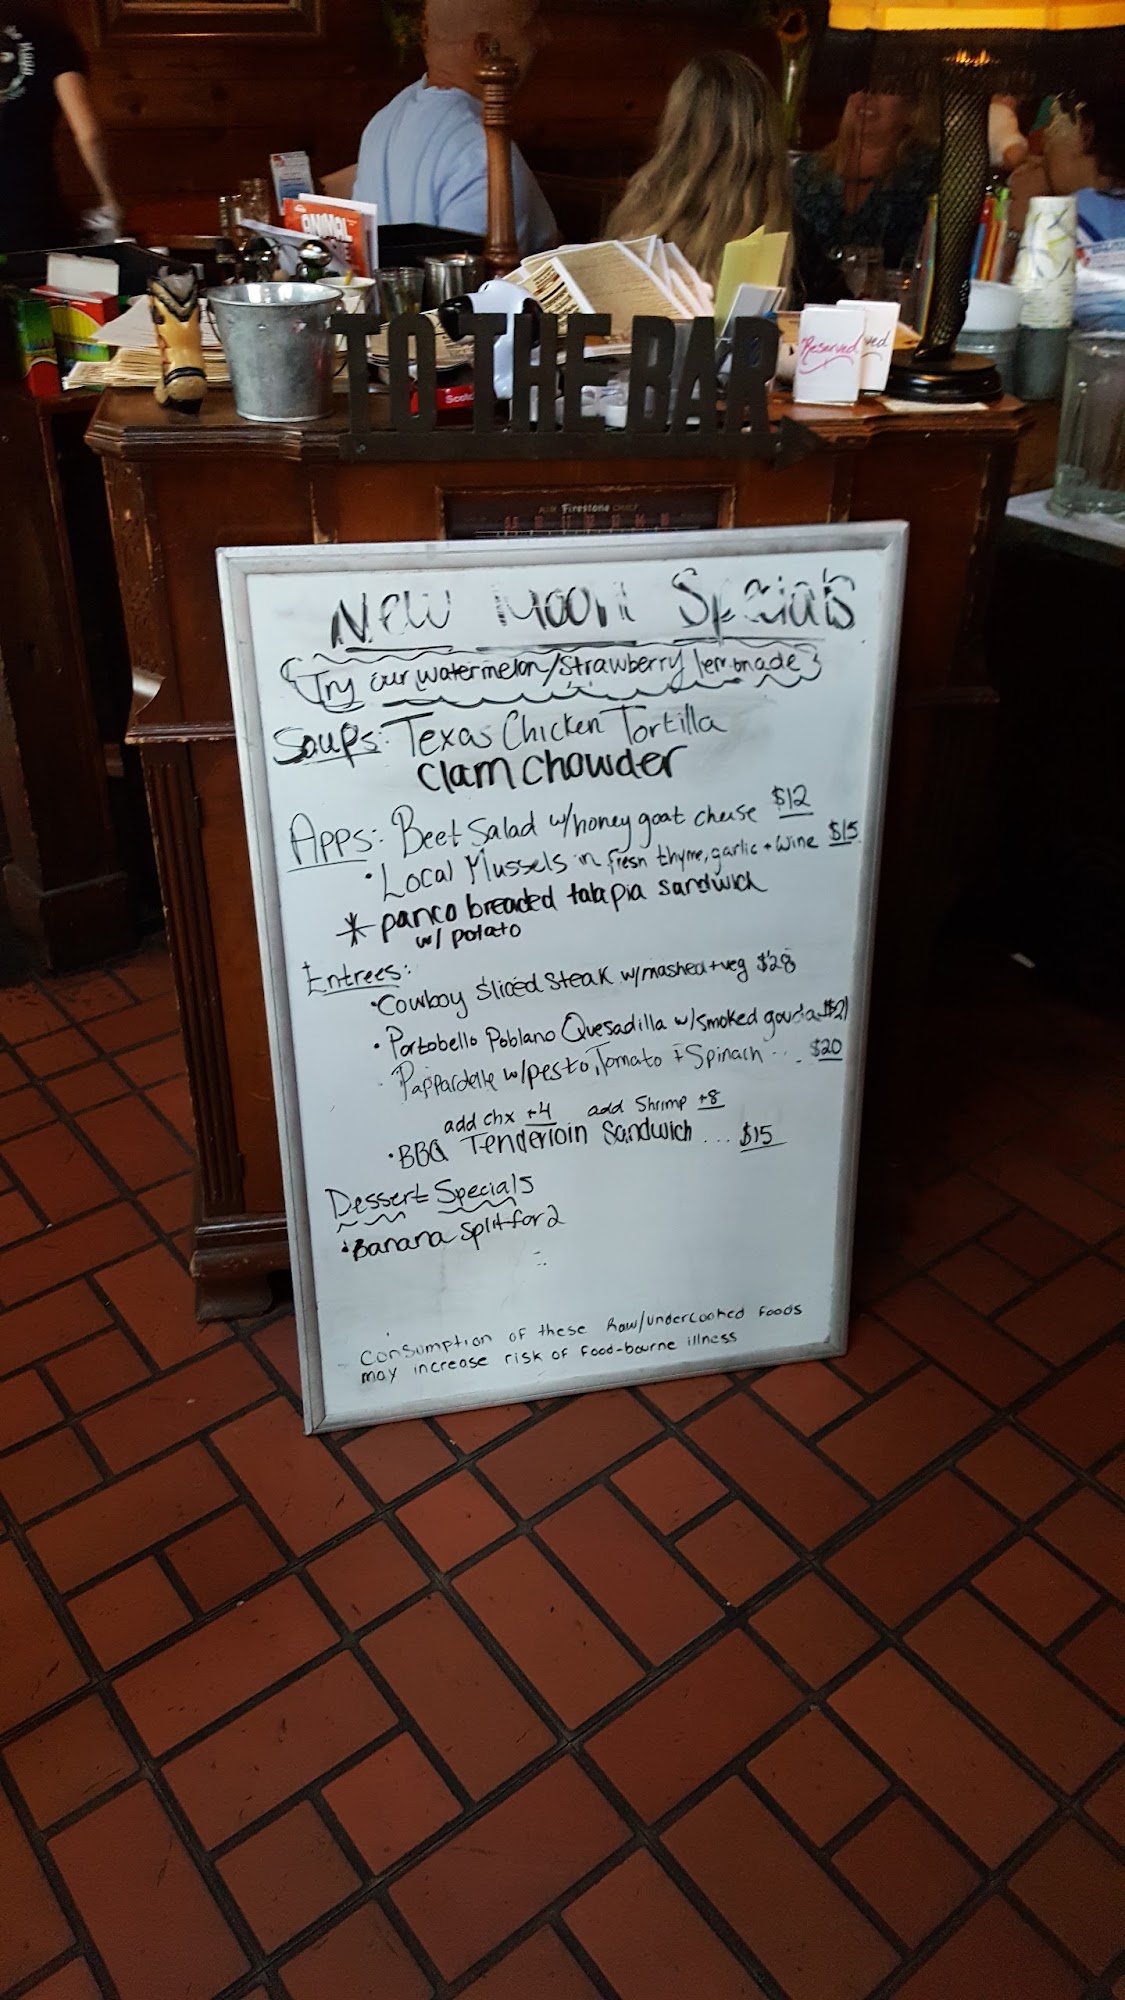 ANIMAL
TO THE BAR
Reserved
ved
Scotch
AIR Firestone CHIEF
New Moon Specials
Try our watermelon/strawberry lemonade
Soups: Texas Chicken Tortilla
Clam Chowder
Apps: Beet Salad w/honey goat cheese $12
• Local Mussels in fresh thyme, garlic + wine $15
* panco breaded talapia sandwich
w/ potato
Entrees:
• Cowboy Sliced Steak w/mashed + veg $28
• Portobello Poblano Quesadilla w/smoked gouda $21
Pappardelle w/pesto, Tomato + Spinach ... $20
add chx +4 add Shrimp +8
• BBQ Tenderloin Sandwich ... $15
Dessert Specials
• Banana Split for 2
Consumption of these Raw/undercooked foods
may increase risk of food-bourne illness